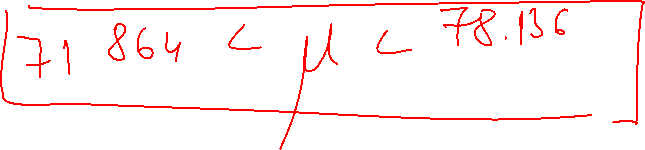 71 864 < μ < 78.136